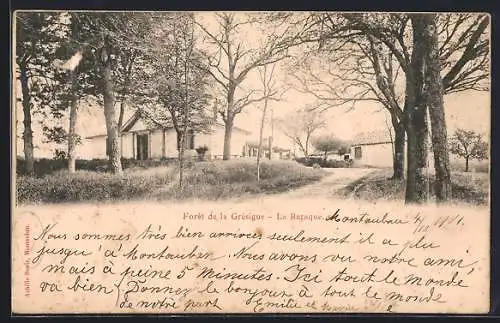 Forêt de la Grésigne – Le Rapaque.
Montauban 4/12 1901
Nous sommes très bien arrivés seulement il a plu
jusqu'à Montauban. Nous avons vu notre ami,
mais à peine 5 minutes. Ici tout le monde
va bien. Donnez le bonjour à tout le monde
de notre part Emilie et
Achille Bouïs, Montauban.